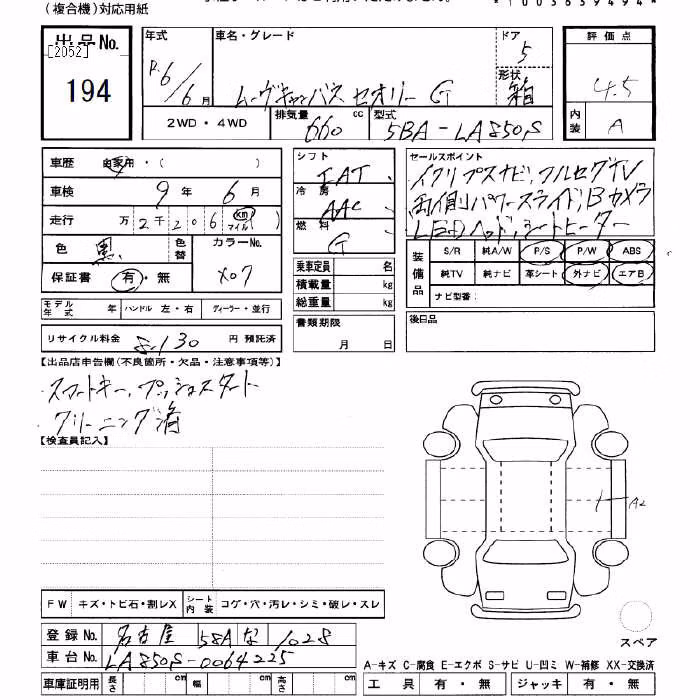 (複合機)対応用紙
出品No.
[2052]
194
年式
R.6/6月
車名・グレード
ムーヴキャンバス セオリー G
ドア
5
形状
箱
2WD・4WD
排気量
660 cc
型式
5BA-LA850S
評価点
4.5
内装
A
車歴 自家用・( )
車検 9年 6月
走行 万2千206 km マイル
色 黒 色替
カラーNo.
X07
保証書 有・無
モデル年式 年 ハンドル 左・右 ディーラー・並行
リサイクル料金 8,130 円 預託済
シフト
FAT
冷房
AAC
燃料
G
乗車定員 名
積載量 kg
総重量 kg
書類期限
月 日
セールスポイント
イクリプスナビ,フルセグTV
両側パワースライド,Bカメラ
LEDヘッド,シートヒーター
装備品
S/R 純A/W P/S P/W ABS
純TV 純ナビ 革シート 外ナビ エアB
ナビ型番:
後日品
【出品店申告欄(不良箇所・欠品・注意事項等)】
・スマートキー,プッシュスタート
・クリーニング済
【検査員記入】
A2
FW キズ・トビ石・割レX シート内装 コゲ・穴・汚レ・シミ・破レ・スレ
登録No. 名古屋 58A な 1028
車台No. LA850S-0064225
スペア
A-キズ C-腐食 E-エクボ S-サビ U-凹ミ W-補修 XX-交換済
車庫証明用 長さ cm 幅 cm 高さ cm
工具 有・無 ジャッキ 有・無